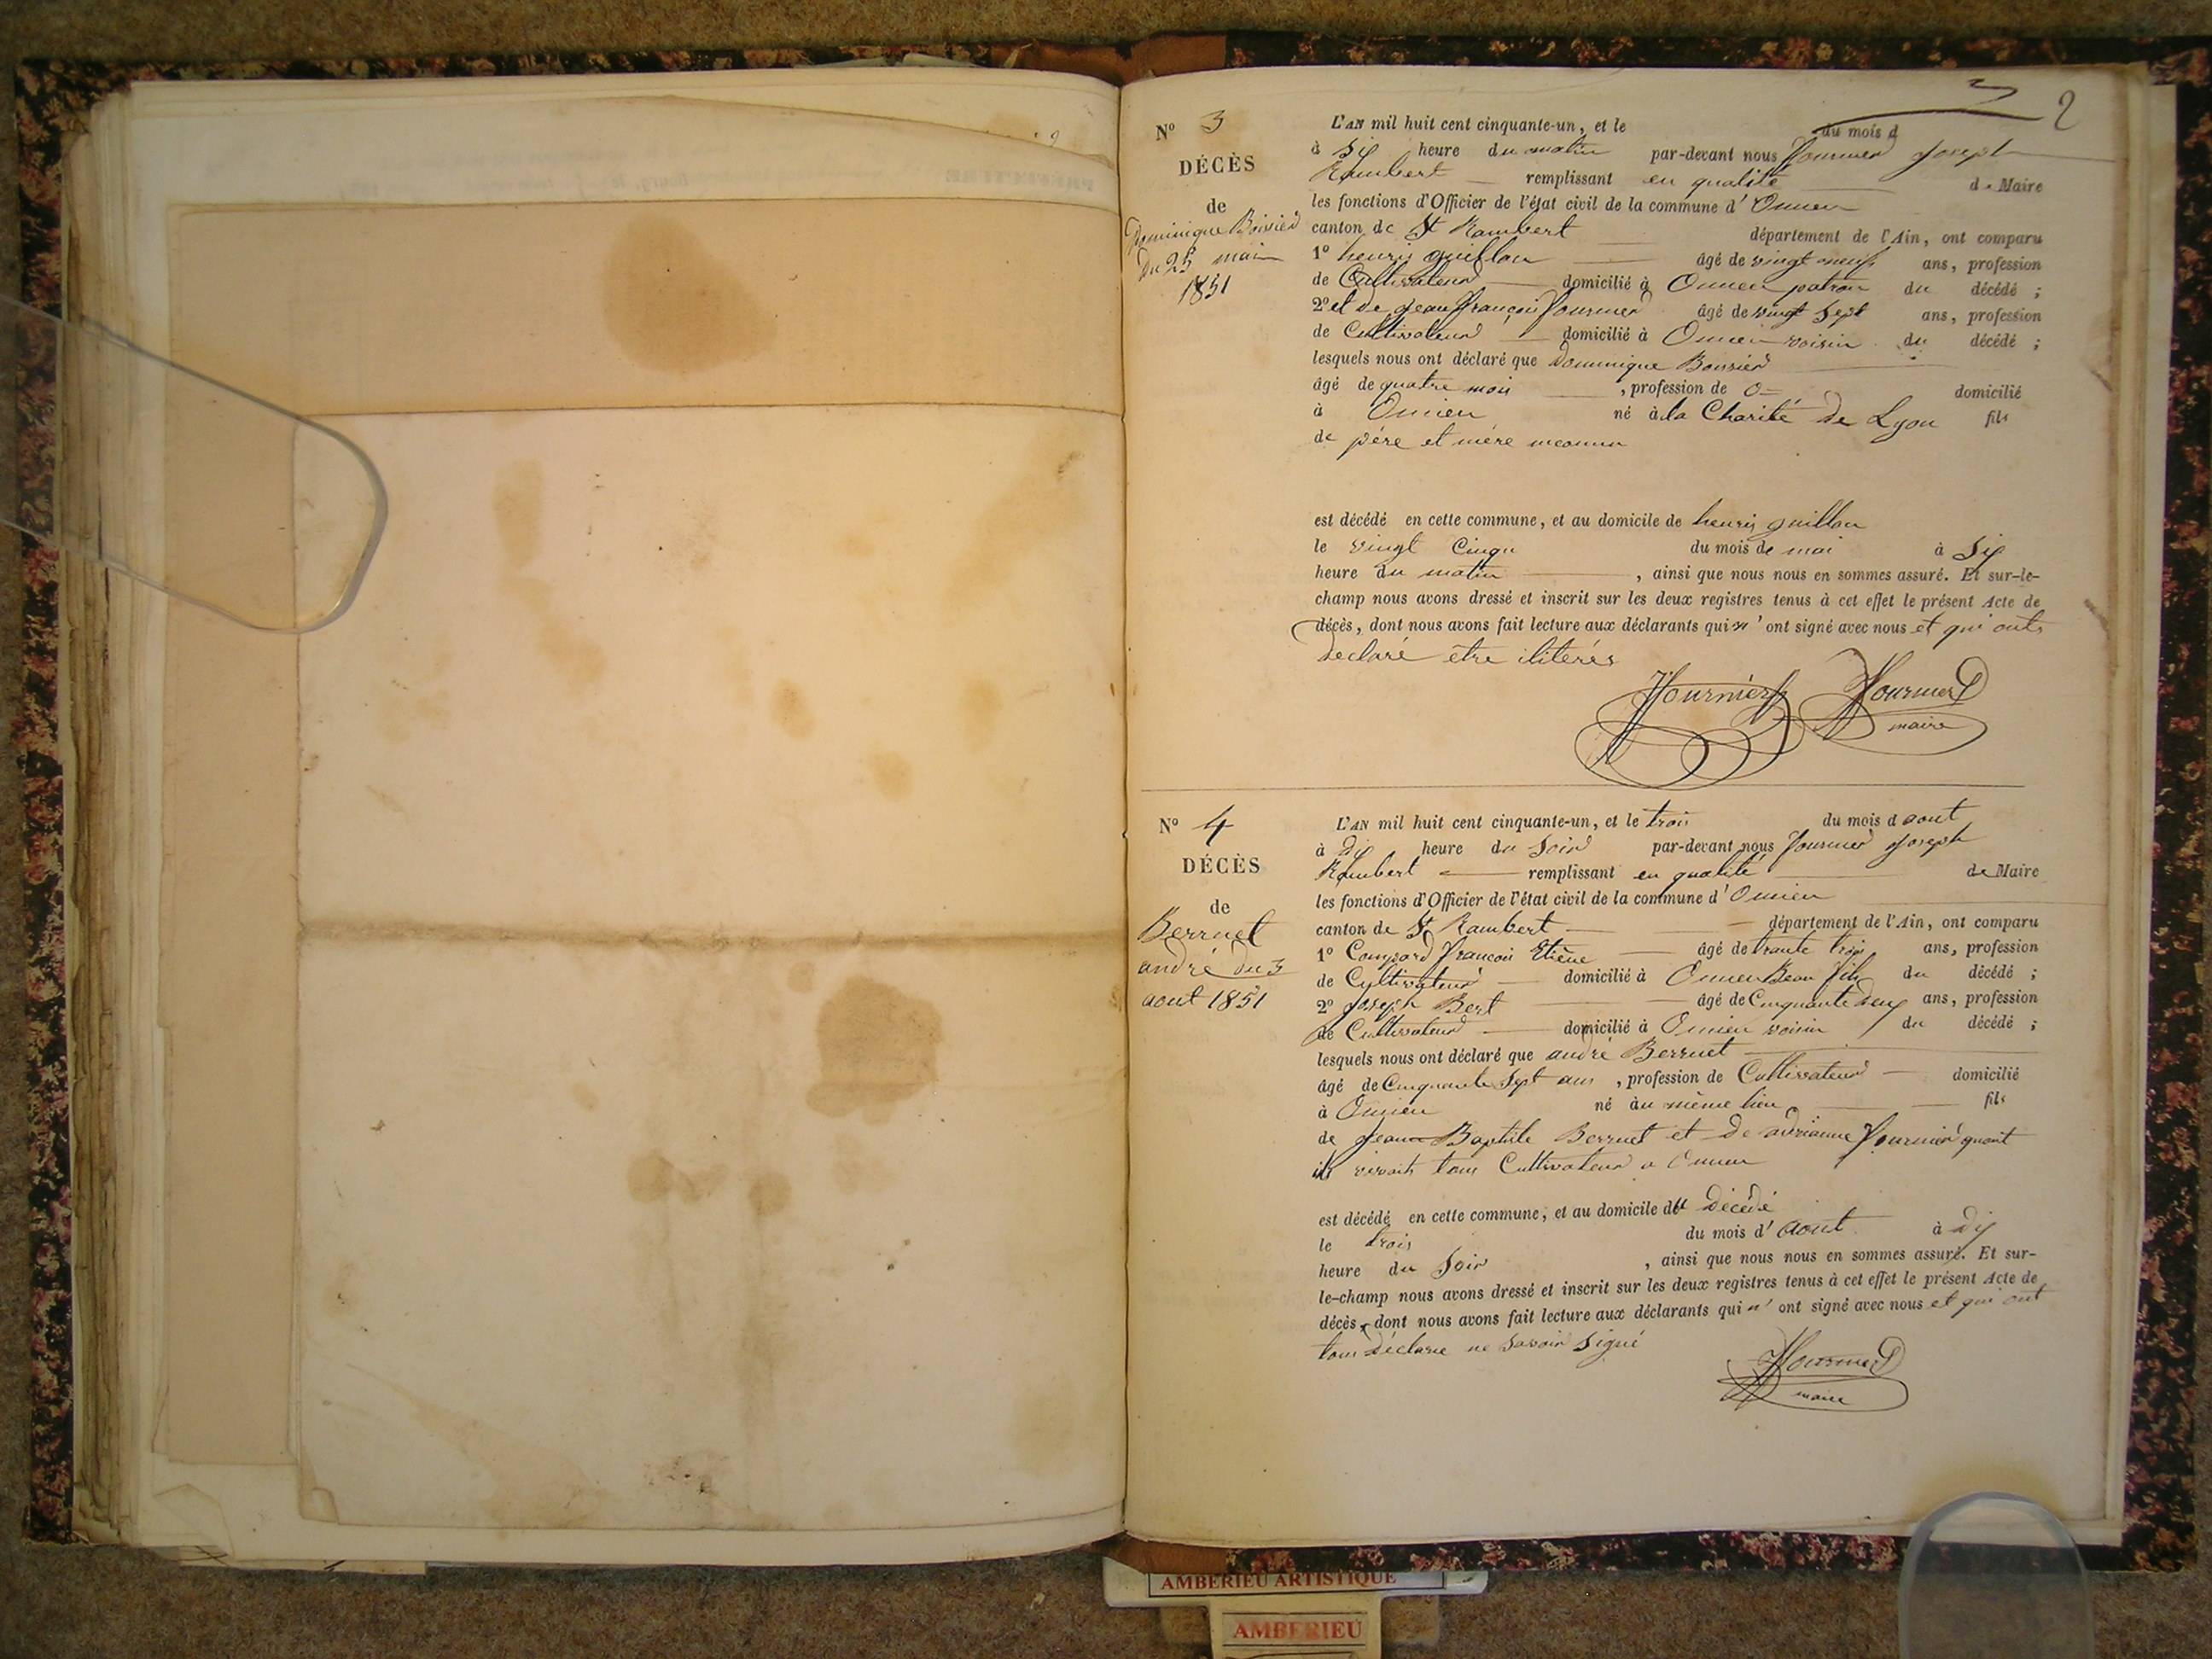 2
N° 3
DÉCÈS
de
Dominique Boissier
du 25 mai
1851
L'AN mil huit cent cinquante-un, et le du mois d
à six heure du matin par-devant nous fournier joseph
Rambert remplissant en qualité de Maire
les fonctions d'Officier de l'état civil de la commune d' Oncieu
canton de St Rambert département de l'Ain, ont comparu
1° henris guillon âgé de vingt neuf ans, profession
de Cultivateur domicilié à Oncieu patron du décédé ;
2° et de jean françois fournier âgé de vingt sept ans, profession
de Cultivateur domicilié à Oncieu voisin du décédé ;
lesquels nous ont déclaré que Dominique Boissier
âgé de quatre mois , profession de 0 domicilié
à Oncieu né à la Charité de Lyon fils
de père et mère inconnu
est décédé en cette commune, et au domicile de henris guillon
le vingt cinqu du mois de mai à six
heure du matin , ainsi que nous nous en sommes assuré. Et sur-le-
champ nous avons dressé et inscrit sur les deux registres tenus à cet effet le présent Acte de
décès, dont nous avons fait lecture aux déclarants qui n' ont signé avec nous et qui onts
declaré être iliterés
fournier fournier
maire
N° 4
DÉCÈS
de
Berrnet
andré du 3
aout 1851
L'AN mil huit cent cinquante-un, et le trois du mois d aout
à dix heure du soir par-devant nous fournier joseph
Rambert remplissant en qualité de Maire
les fonctions d'Officier de l'état civil de la commune d' Oncieu
canton de St Rambert département de l'Ain, ont comparu
1° françois Etiène âgé de trante trois ans, profession
de Cultivateur domicilié à Oncieu Beau fils du décédé ;
2° joseph Bert âgé de Cinquante deux ans, profession
de Cultivateur domicilié à Oncieu voisin du décédé ;
lesquels nous ont déclaré que andré Berrnet
âgé de Cinquante sept ans , profession de Cultivateur domicilié
à Oncieu né au même lieu fils
de jean Baptiste Berrnet et de adrianne fournier quant
ils vivait tous Cultivateur a Oncieu
est décédé en cette commune, et au domicile du décédé
le trois du mois d' aout à dix
heure du soir , ainsi que nous nous en sommes assuré. Et sur-
le-champ nous avons dressé et inscrit sur les deux registres tenus à cet effet le présent Acte de
décès, dont nous avons fait lecture aux déclarants qui n' ont signé avec nous et qui ont
tous déclare ne savoir signé
fournier
maire
AMBERIEU ARTISTIQUE
AMBERIEU